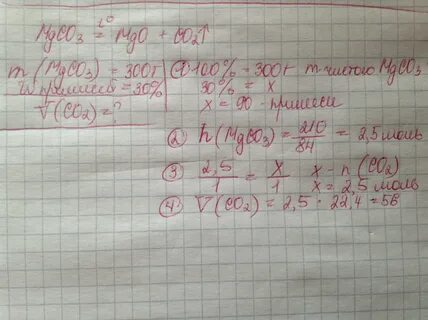 MgCO₃ =t°= MgO + CO₂↑
m (MgCO₃) = 300г
W примесей = 30%
V (CO₂) = ?
① 100% = 300г m-чистого MgCO₃
30% = x
x = 90 - примеси
② n (MgCO₃) = 210/84 = 2,5 моль
③ 2,5/1 = x/1 x - n (CO₂)
x = 2,5 моль
④ V (CO₂) = 2,5 · 22,4 = 56